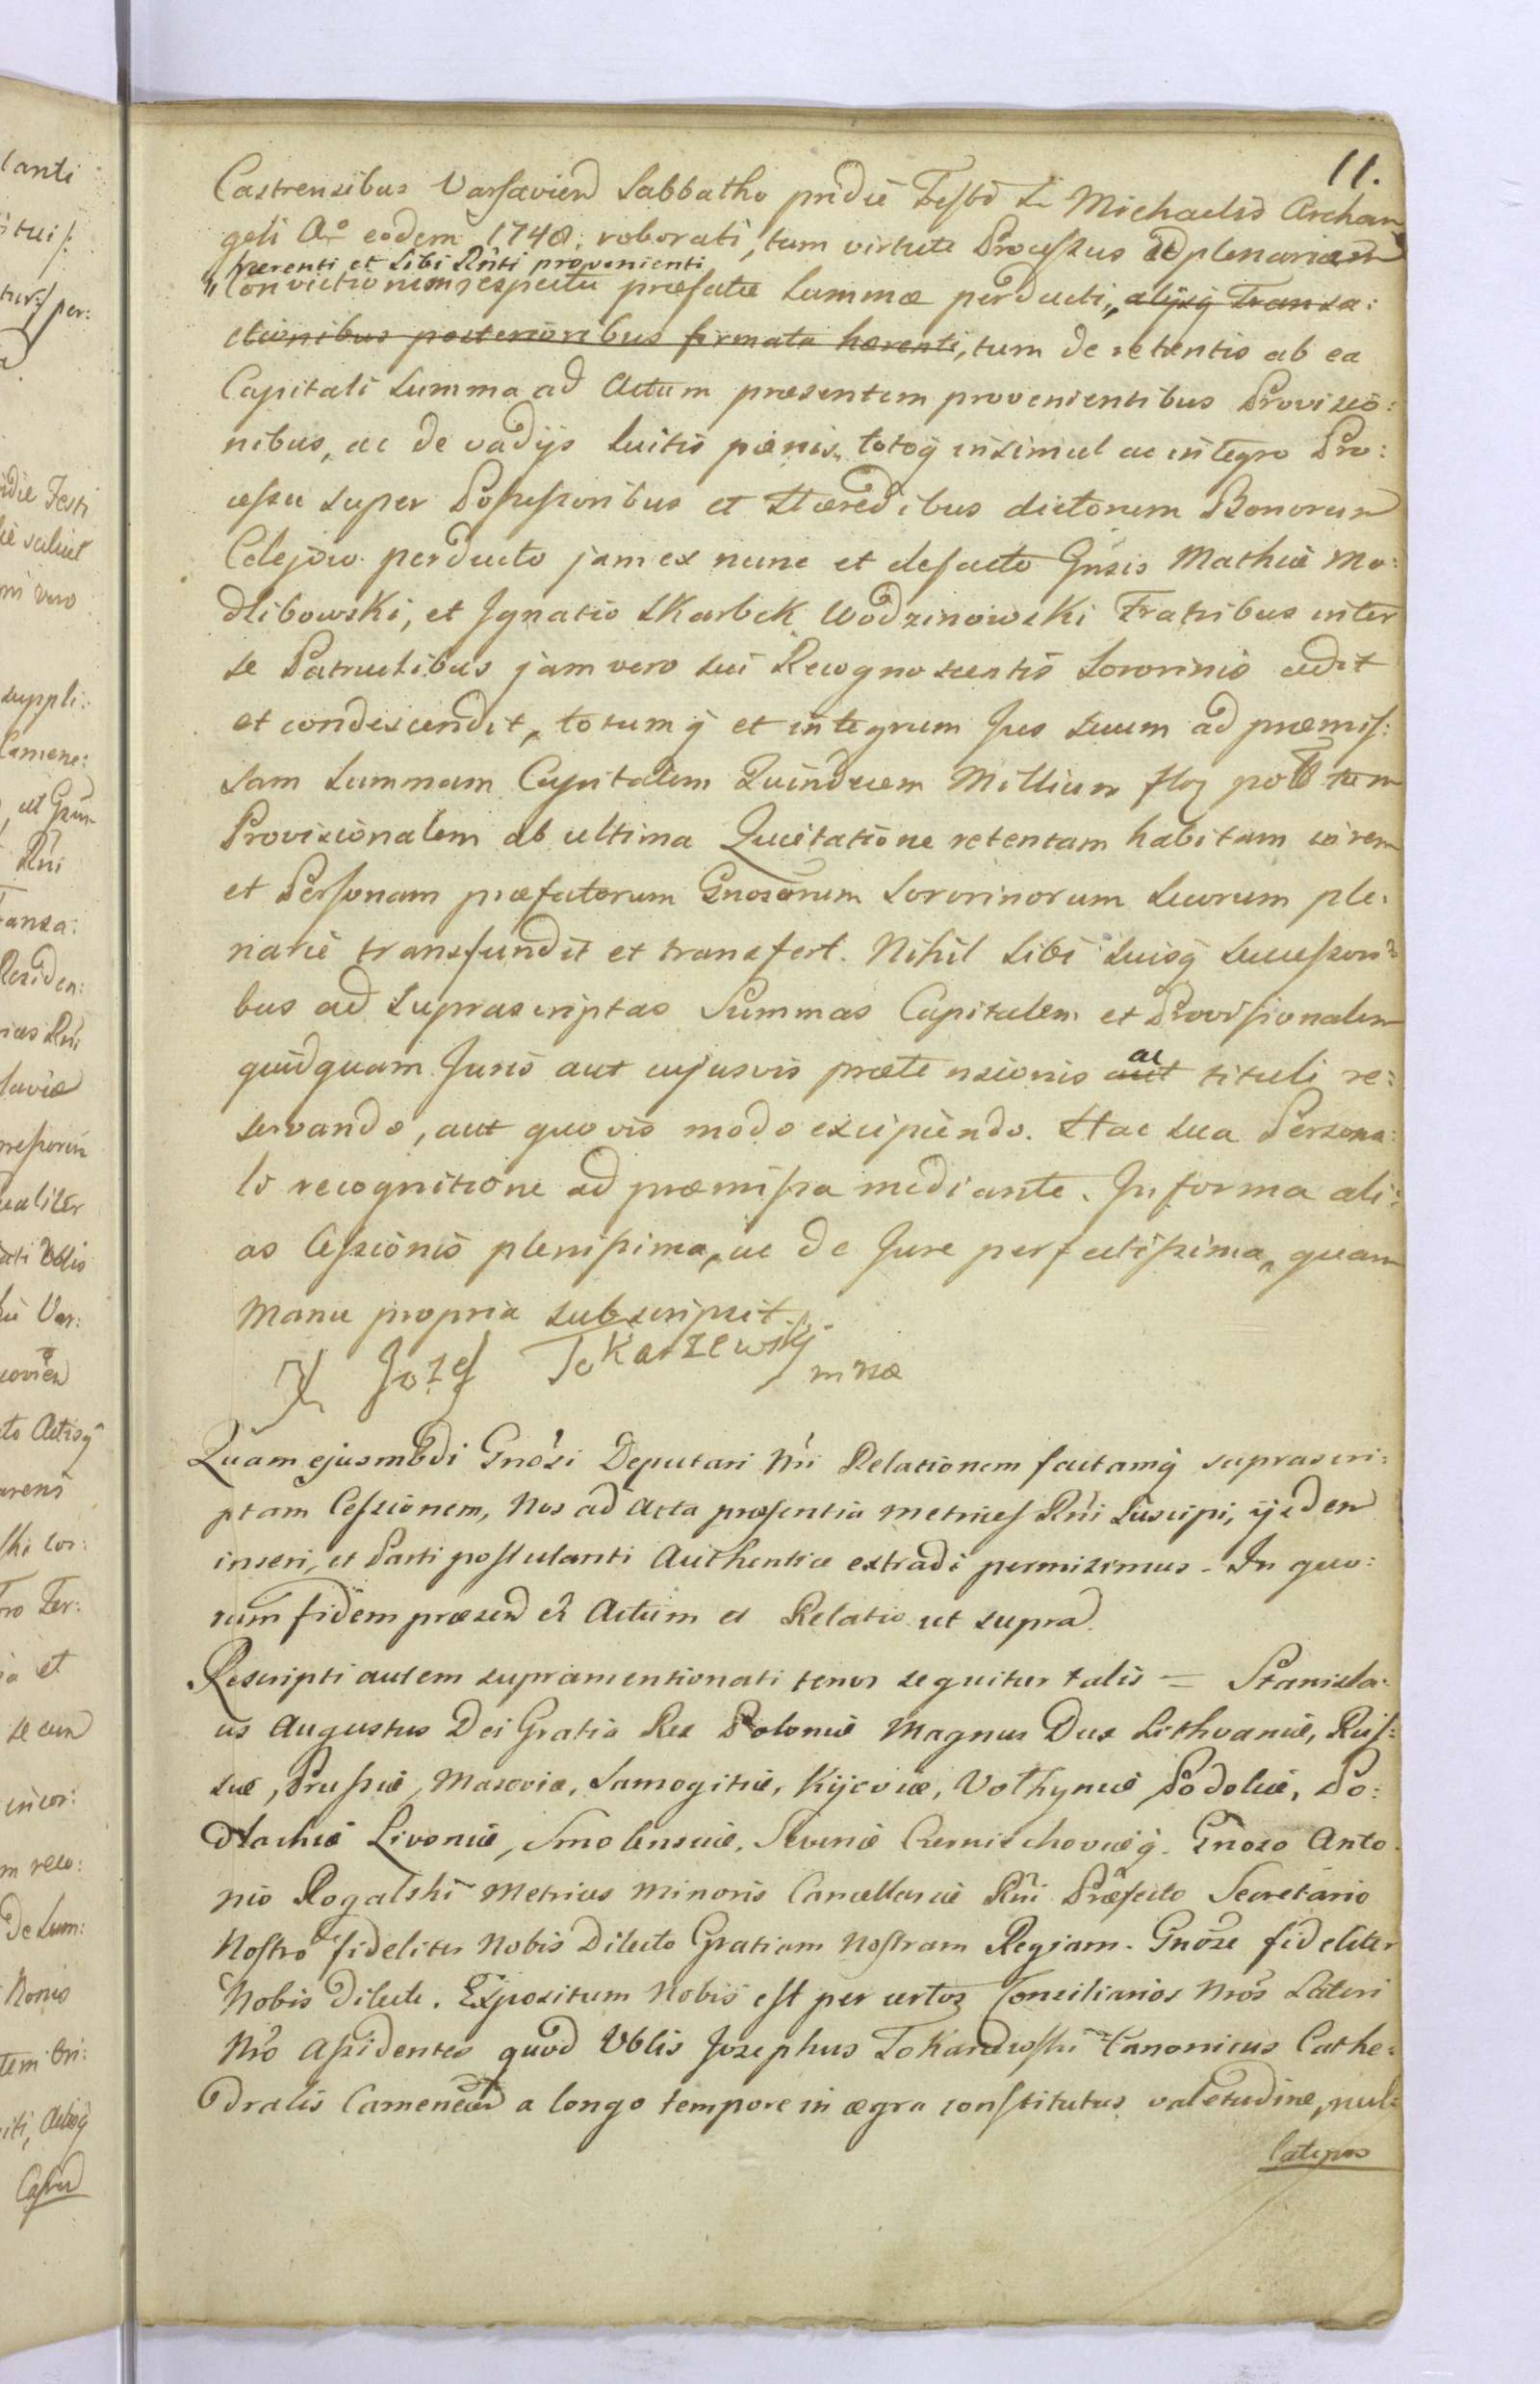 11.
Castrensibus Varsavien Sabbatho pridie Festi S. Michaelis Archan
geli Ao eodem 1748. roborati, tum virtute Processus ad plenariam
hærenti et Sibi Rnti provenienti
"Convictionem respectu præfatæ Summæ perducti, alijsq Transa:
ctionibus posterioribus firmata hærenti, tum de retentis ab ea
Capitali Summa ad Actum præsentem provenientibus Provisio:
nibus, ac de vadijs luitis pœnis, totoq insimul ac integro Pro:
cessu super Possessoribus et Hæredibus dictorum Bonorum
Celejow perducto jam ex nunc et defacto Gnsis Mathiæ Mo:
dlibowski, et Ignatio Skarbek Wodzinowski Fratribus inter
se Patruelibus jam vero sui Recognoscentis Sororinis cedit
et condescendit, totumq et integrum Jus Suum ad præmis:
sam Summam Capitalem Quindecem Millium floq poll tum
Provisionalem ab ultima Quietatione retentam habitam in rem
et Personam præfatorum Gnosorum Sororinorum Suorum ple:
narie transfundit et transfert. Nihil Sibi Suisq Successori:
bus ad Suprascriptas Summas Capitalem et Provisionalem
quidquam Juris aut cujusvis prætensionis aut ac tituli re:
servando, aut quovis modo excipiendo. Hac sua Persona:
li recognitione ad præmissa mediante. In forma ali:
as Cessionis plenissima, ac de Jure perfectissima, quam
Manu propria subscripsit.
X Jozef Tokarzewskj
mnæ
Quam ejusmodi Gnosi Deputati Nri Relationem factamq suprascri:
ptam Cessionem, Nos ad Acta præsentia Metrices Rni Suscipi, ijsdem
inseri, et Parti postulanti Authentice extradi permisimus. In quo:
rum fidem præsen et Actum et Relatio ut supra.
Rescripti autem supramentionati tenor sequitur talis = Stanisla:
us Augustus Dei Gratia Rex Poloniæ Magnus Dux Lithvaniæ, Rus:
siæ, Prussiæ, Masoviæ, Samogitiæ, Kijoviæ, Volhyniæ Podoliæ, Po:
dlachiæ Livoniæ, Smolensciæ, Severiæ Czernichoviæq. Gnoso Anto:
nio Rogalski Metrices Minoris Cancellariæ Rni Præfecto Secretario
Nostro fideliter Nobis Dilecto Gratiam Nostram Regiam. Gnose fideliter
Nobis Dilecte. Expositum Nobis est per certos Consiliarios Nros Lateri
Nro Assidentes quod Vblis Josephus Tokarzewski Canonicus Cathe:
dralis Camenecen a longo tempore in ægra constitutus valetudine, nul:
latenus
lanti
pridie Festi
suppli:
Camene:
Rni
Transa:
Residen:
Var:
Actisq
et
incor:
reco:
De Sum: